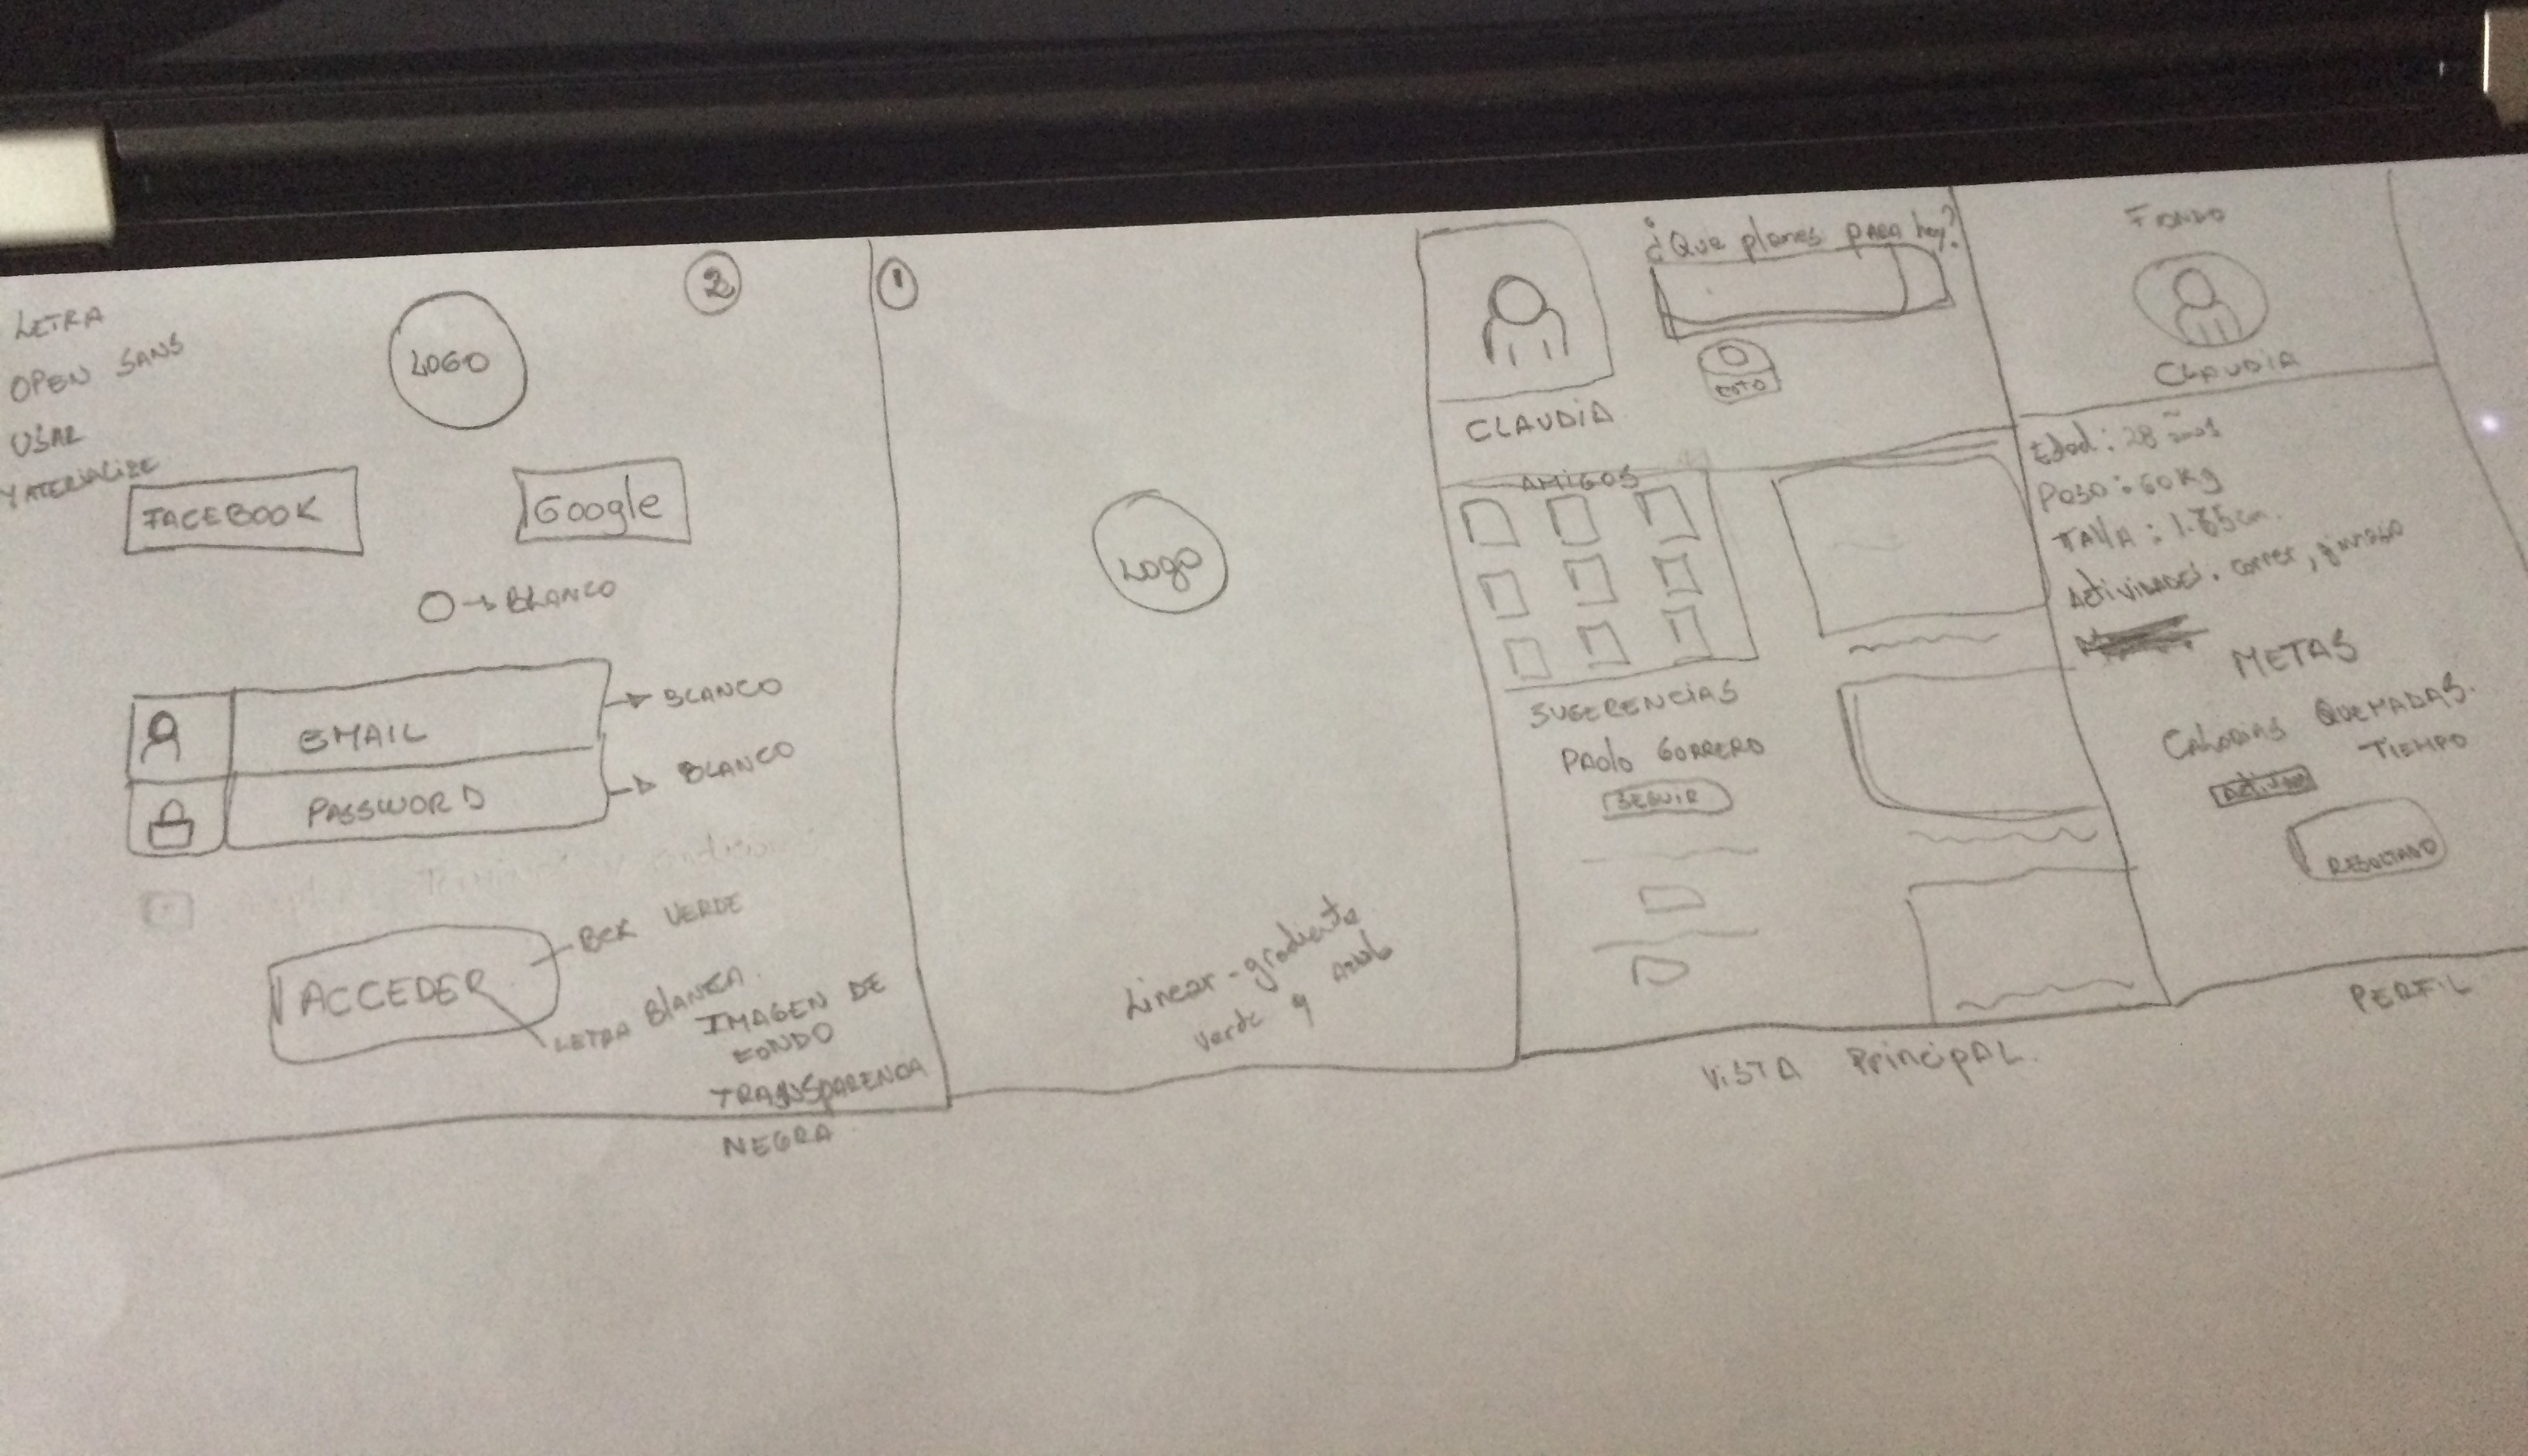 LETRA
OPEN SANS
USAR
MATERIALIZE
2
LOGO
FACEBOOK
Google
O → BLANCO
EMAIL
BLANCO
PASSWORD
BLANCO
ACCEDER
BCK VERDE
LETRA BLANCA
IMAGEN DE
FONDO
TRANSPARENCIA
NEGRA
1
LOGO
Linear-gradiente
verde y azul
¿Que planes para hoy?
FOTO
CLAUDIA
AMIGOS
SUGERENCIAS
PAOLO GORRERO
SEGUIR
VISTA PrincipAL
FONDO
CLAUDIA
Edad: 28 años
Peso: 60 Kg
TALLA: 1.65 cm.
ACTIVIDADES. correr, gimnasio
METAS
CALORIAS QUEMADAS.
TIEMPO
RESULTADO
PERFIL